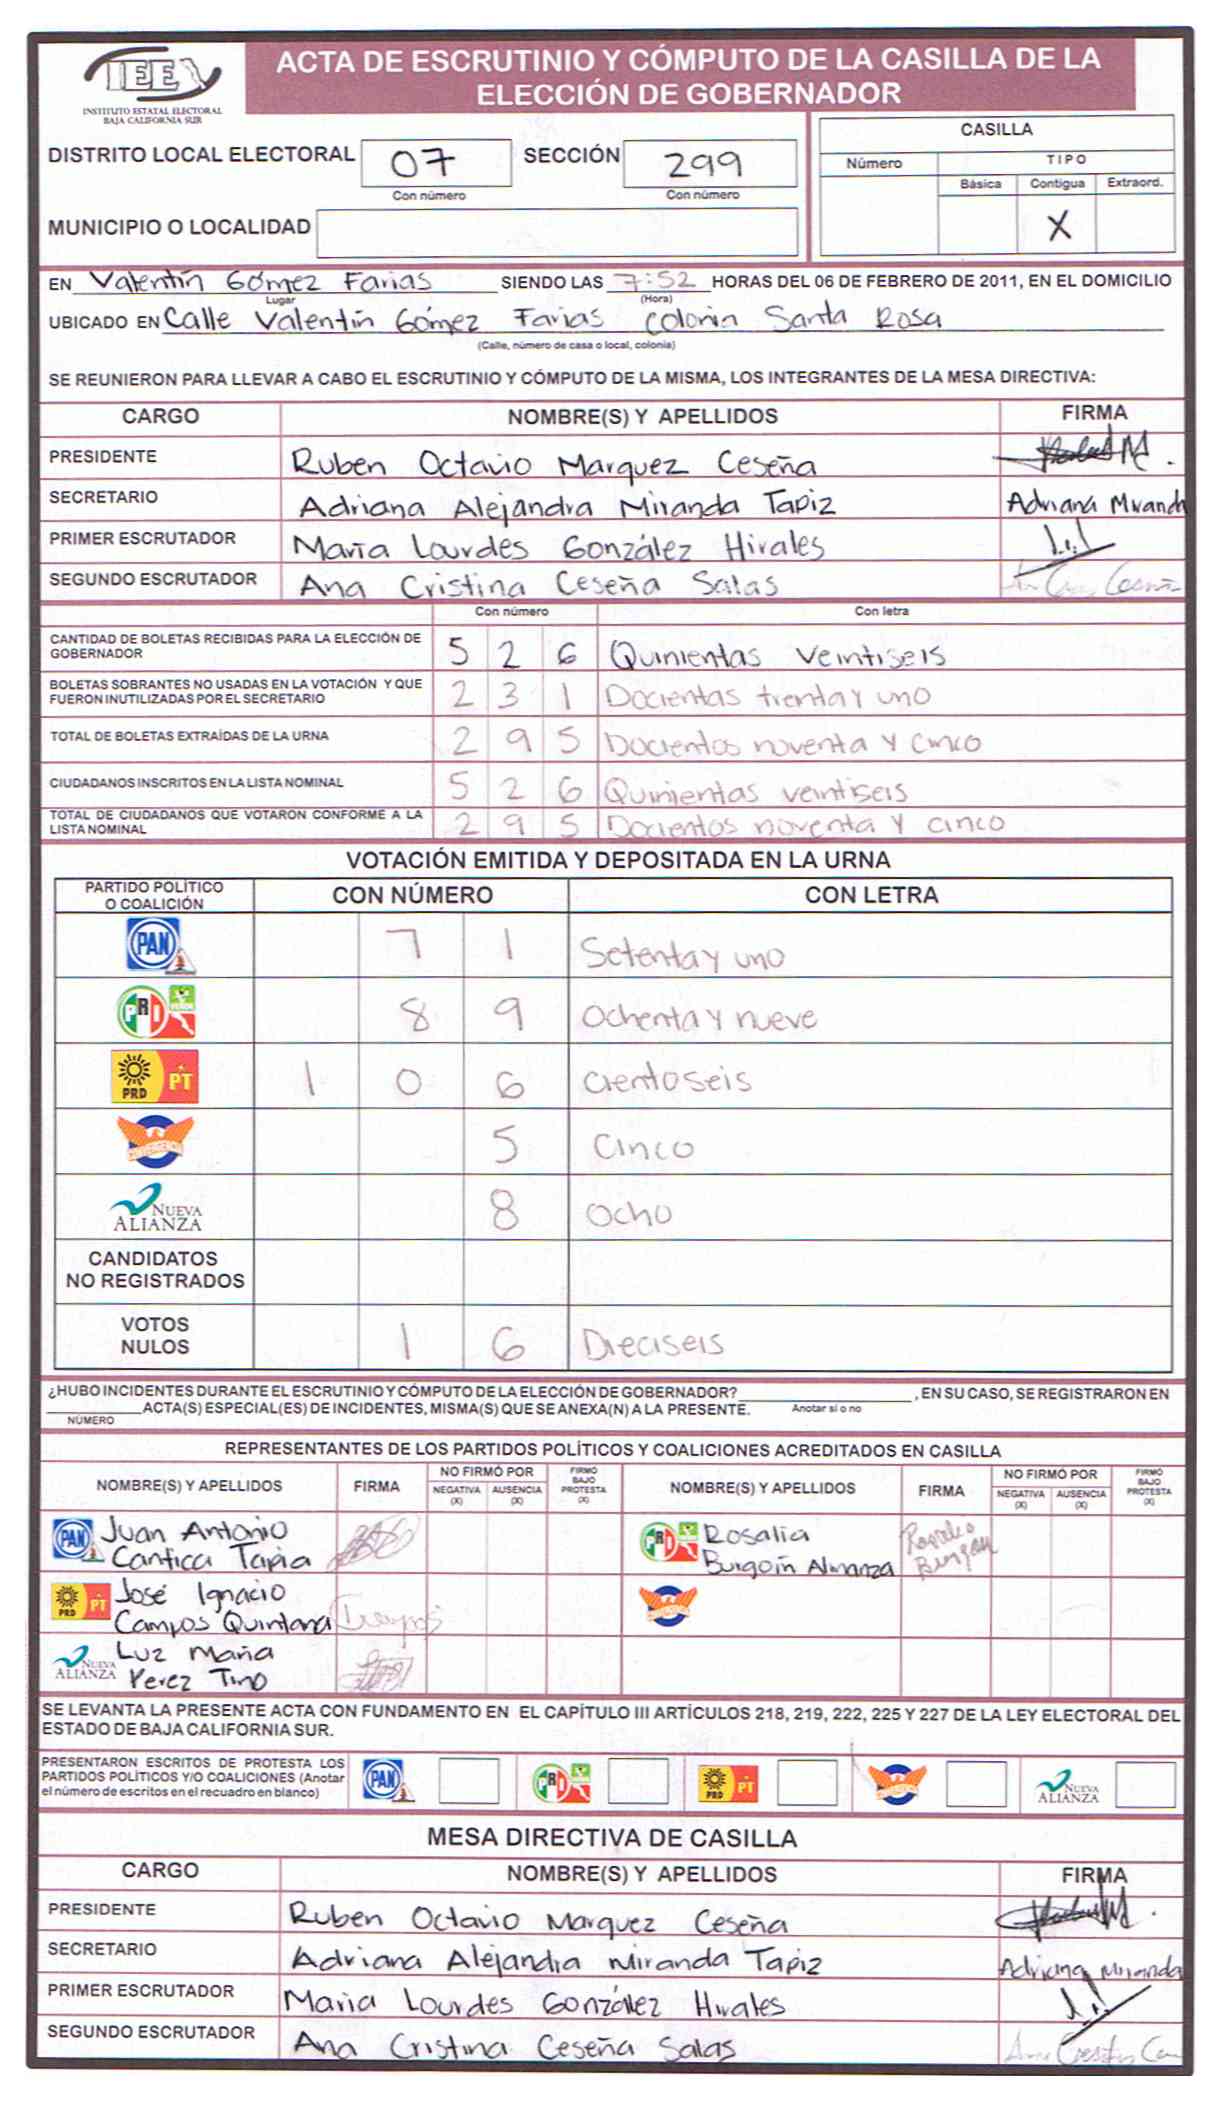 IEEX
INSTITUTO ESTATAL ELECTORAL
BAJA CALIFORNIA SUR
ACTA DE ESCRUTINIO Y CÓMPUTO DE LA CASILLA DE LA
ELECCIÓN DE GOBERNADOR
DISTRITO LOCAL ELECTORAL 07 SECCIÓN 299
Con número Con número
MUNICIPIO O LOCALIDAD
CASILLA
Número TIPO
Básica Contigua Extraord.
X
EN Valentín Gómez Farias SIENDO LAS 7:52 HORAS DEL 06 DE FEBRERO DE 2011, EN EL DOMICILIO
Lugar (Hora)
UBICADO EN Calle Valentín Gómez Farias Colonia Santa Rosa
(Calle, número de casa o local, colonia)
SE REUNIERON PARA LLEVAR A CABO EL ESCRUTINIO Y CÓMPUTO DE LA MISMA, LOS INTEGRANTES DE LA MESA DIRECTIVA:
CARGO NOMBRE(S) Y APELLIDOS FIRMA
PRESIDENTE Ruben Octavio Marquez Ceseña
SECRETARIO Adriana Alejandra Miranda Tapiz Adriana Miranda
PRIMER ESCRUTADOR María Lourdes González Hirales
SEGUNDO ESCRUTADOR Ana Cristina Ceseña Salas
Con número Con letra
CANTIDAD DE BOLETAS RECIBIDAS PARA LA ELECCIÓN DE
GOBERNADOR 5 2 6 Quinientas veintiseis
BOLETAS SOBRANTES NO USADAS EN LA VOTACIÓN Y QUE
FUERON INUTILIZADAS POR EL SECRETARIO 2 3 1 Docientas trenta y uno
TOTAL DE BOLETAS EXTRAÍDAS DE LA URNA 2 9 5 Docientos noventa y cinco
CIUDADANOS INSCRITOS EN LA LISTA NOMINAL 5 2 6 Quinientas veintiseis
TOTAL DE CIUDADANOS QUE VOTARON CONFORME A LA
LISTA NOMINAL 2 9 5 Docientos noventa y cinco
VOTACIÓN EMITIDA Y DEPOSITADA EN LA URNA
PARTIDO POLÍTICO
O COALICIÓN CON NÚMERO CON LETRA
PAN 7 1 Setenta y uno
PRI VERDE 8 9 Ochenta y nueve
PRD PT 1 0 6 Cientoseis
CONVERGENCIA 5 Cinco
NUEVA ALIANZA 8 Ocho
CANDIDATOS
NO REGISTRADOS
VOTOS
NULOS 1 6 Dieciseis
¿HUBO INCIDENTES DURANTE EL ESCRUTINIO Y CÓMPUTO DE LA ELECCIÓN DE GOBERNADOR? , EN SU CASO, SE REGISTRARON EN
ACTA(S) ESPECIAL(ES) DE INCIDENTES, MISMA(S) QUE SE ANEXA(N) A LA PRESENTE. Anotar si o no
NÚMERO
REPRESENTANTES DE LOS PARTIDOS POLÍTICOS Y COALICIONES ACREDITADOS EN CASILLA
NOMBRE(S) Y APELLIDOS FIRMA NO FIRMÓ POR FIRMÓ BAJO PROTESTA (X) NOMBRE(S) Y APELLIDOS FIRMA NO FIRMÓ POR FIRMÓ BAJO PROTESTA (X)
NEGATIVA (X) AUSENCIA (X) NEGATIVA (X) AUSENCIA (X)
PAN Juan Antonio PRI VERDE Rosalia
Tapia Burgoín Almanza
PRD PT José Ignacio
Campos Quintana
NUEVA ALIANZA Luz María
Perez
SE LEVANTA LA PRESENTE ACTA CON FUNDAMENTO EN EL CAPÍTULO III ARTÍCULOS 218, 219, 222, 225 Y 227 DE LA LEY ELECTORAL DEL
ESTADO DE BAJA CALIFORNIA SUR.
PRESENTARON ESCRITOS DE PROTESTA LOS
PARTIDOS POLÍTICOS Y/O COALICIONES (Anotar
el número de escritos en el recuadro en blanco) PAN PRI VERDE PRD PT CONVERGENCIA NUEVA ALIANZA
MESA DIRECTIVA DE CASILLA
CARGO NOMBRE(S) Y APELLIDOS FIRMA
PRESIDENTE Ruben Octavio Marquez Ceseña
SECRETARIO Adriana Alejandra Miranda Tapiz Adriana Miranda
PRIMER ESCRUTADOR Maria Lourdes González Hirales
SEGUNDO ESCRUTADOR Ana Cristina Ceseña Salas